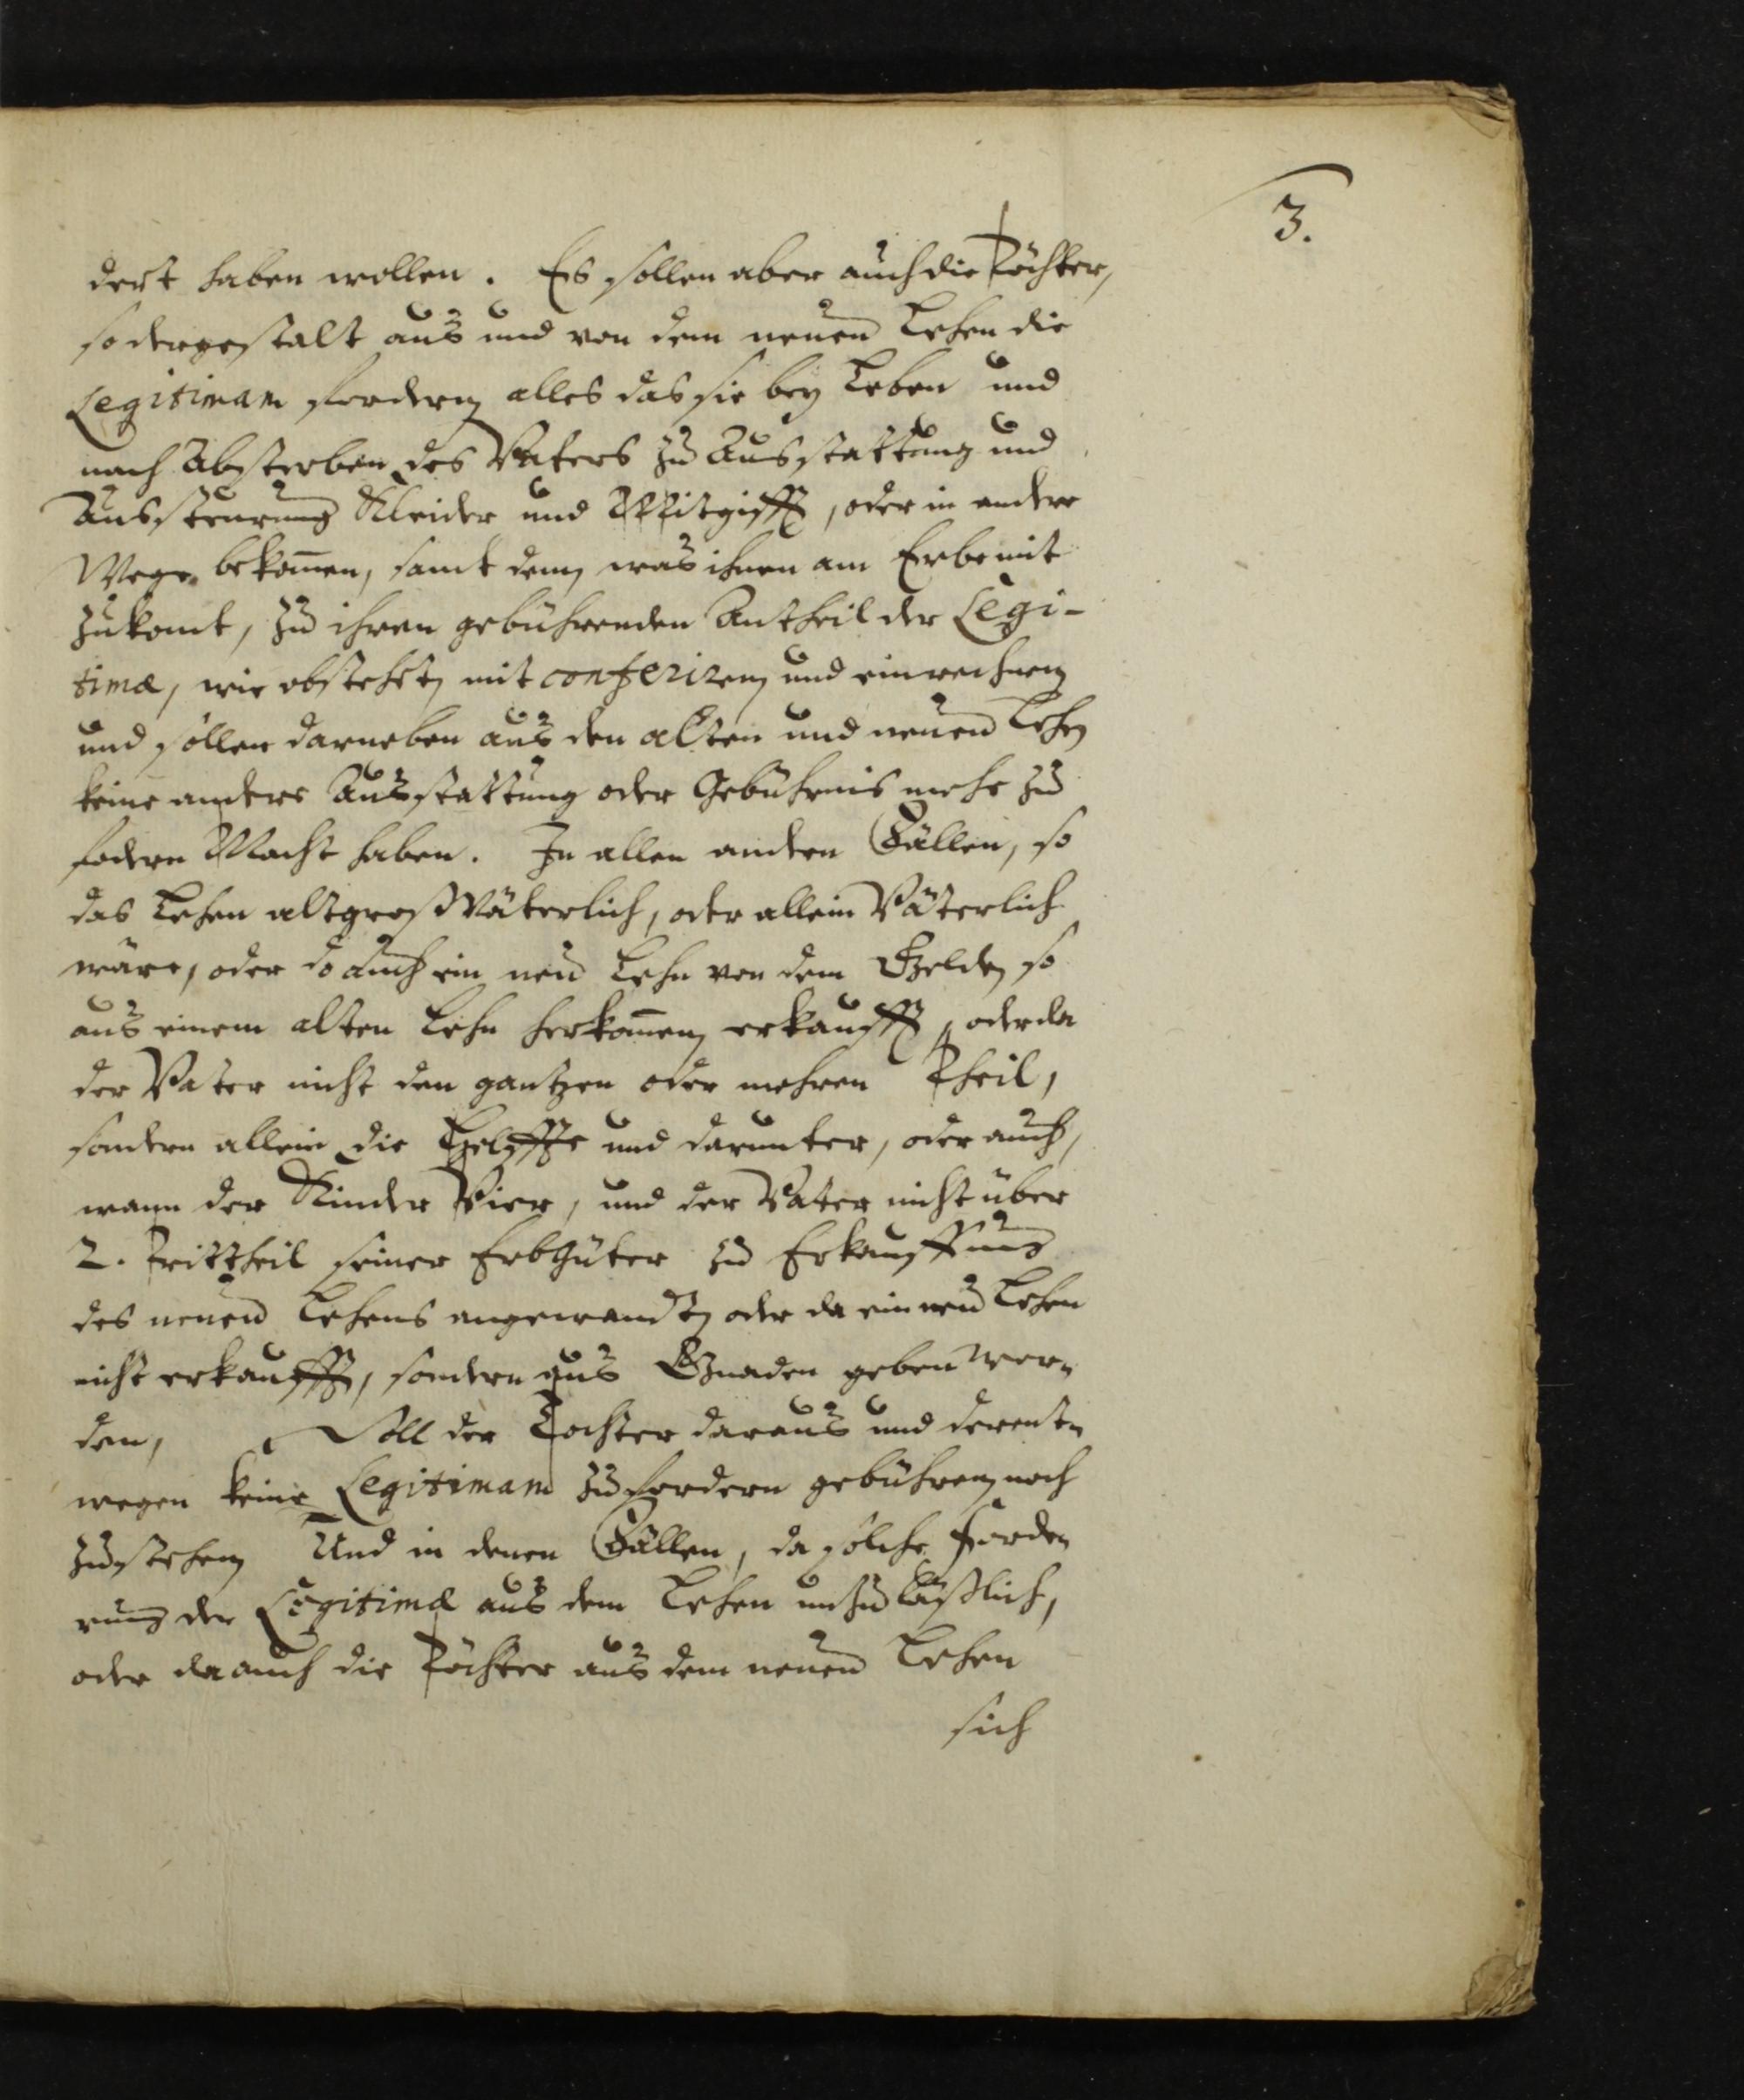 3.
dert haben wollen. Es sollen aber auch die Töchter,
so dergestalt aus und von dem neuen Lehen die
Legitimam fordern alles das sie bey Leben und
nach Absterben des Vaters zu Ausstattung und
Aussteurung Kleider und Mitgifft, oder in andere
Wege bekom̄en, samt dem was ihnen am Erbe mit
zukomt, zu ihren gebührenden Antheil der Legi-
timæ, wie obsteht, mit conferiren und einrechnen
und sollen darneben aus den alten und neuen Lehn
keine andere Ausstattung oder Gebührnis mehr zu
fodern Macht haben. In allen andern Fällen, so
das Lehen altgroßVäterlich, oder allein Väterlich
wäre, oder do auch ein neu Lehn von dem Gelde, so
aus einem alten Lehn herkom̄en, erkaufft, oder da
der Vater nicht den gantzen oder mehren Theil,
sondern allein die Helffte und darunter, oder auch,
wann der Kinder Vier, und der Vater nicht über
2. Drittheil seiner Erbgüter zu Erkauffung
des neuen Lehens angewandt, oder da ein neu Lehen
nicht erkaufft, sondern aus Gnaden geben wer-
den, Soll der Tochter daraus und derent-
wegen keine Legitimam zu fordern gebühren, noch
zustehen Und in denen Fällen, da solche Forde-
rung der Legitimæ aus dem Lehen unzuläßlich,
oder da auch die Töchter aus dem neuen Lehen
sich